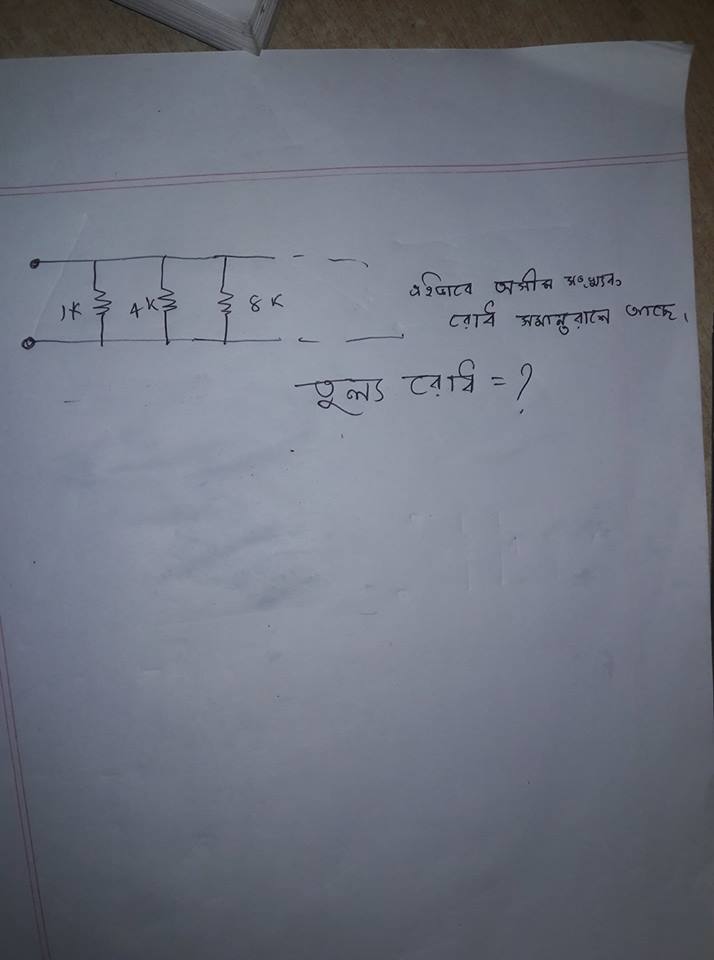 1K 4K 8K
এইভাবে অসীম সংখ্যক
রোধ সমান্তরালে আছে।
তুল্য রোধ = ?